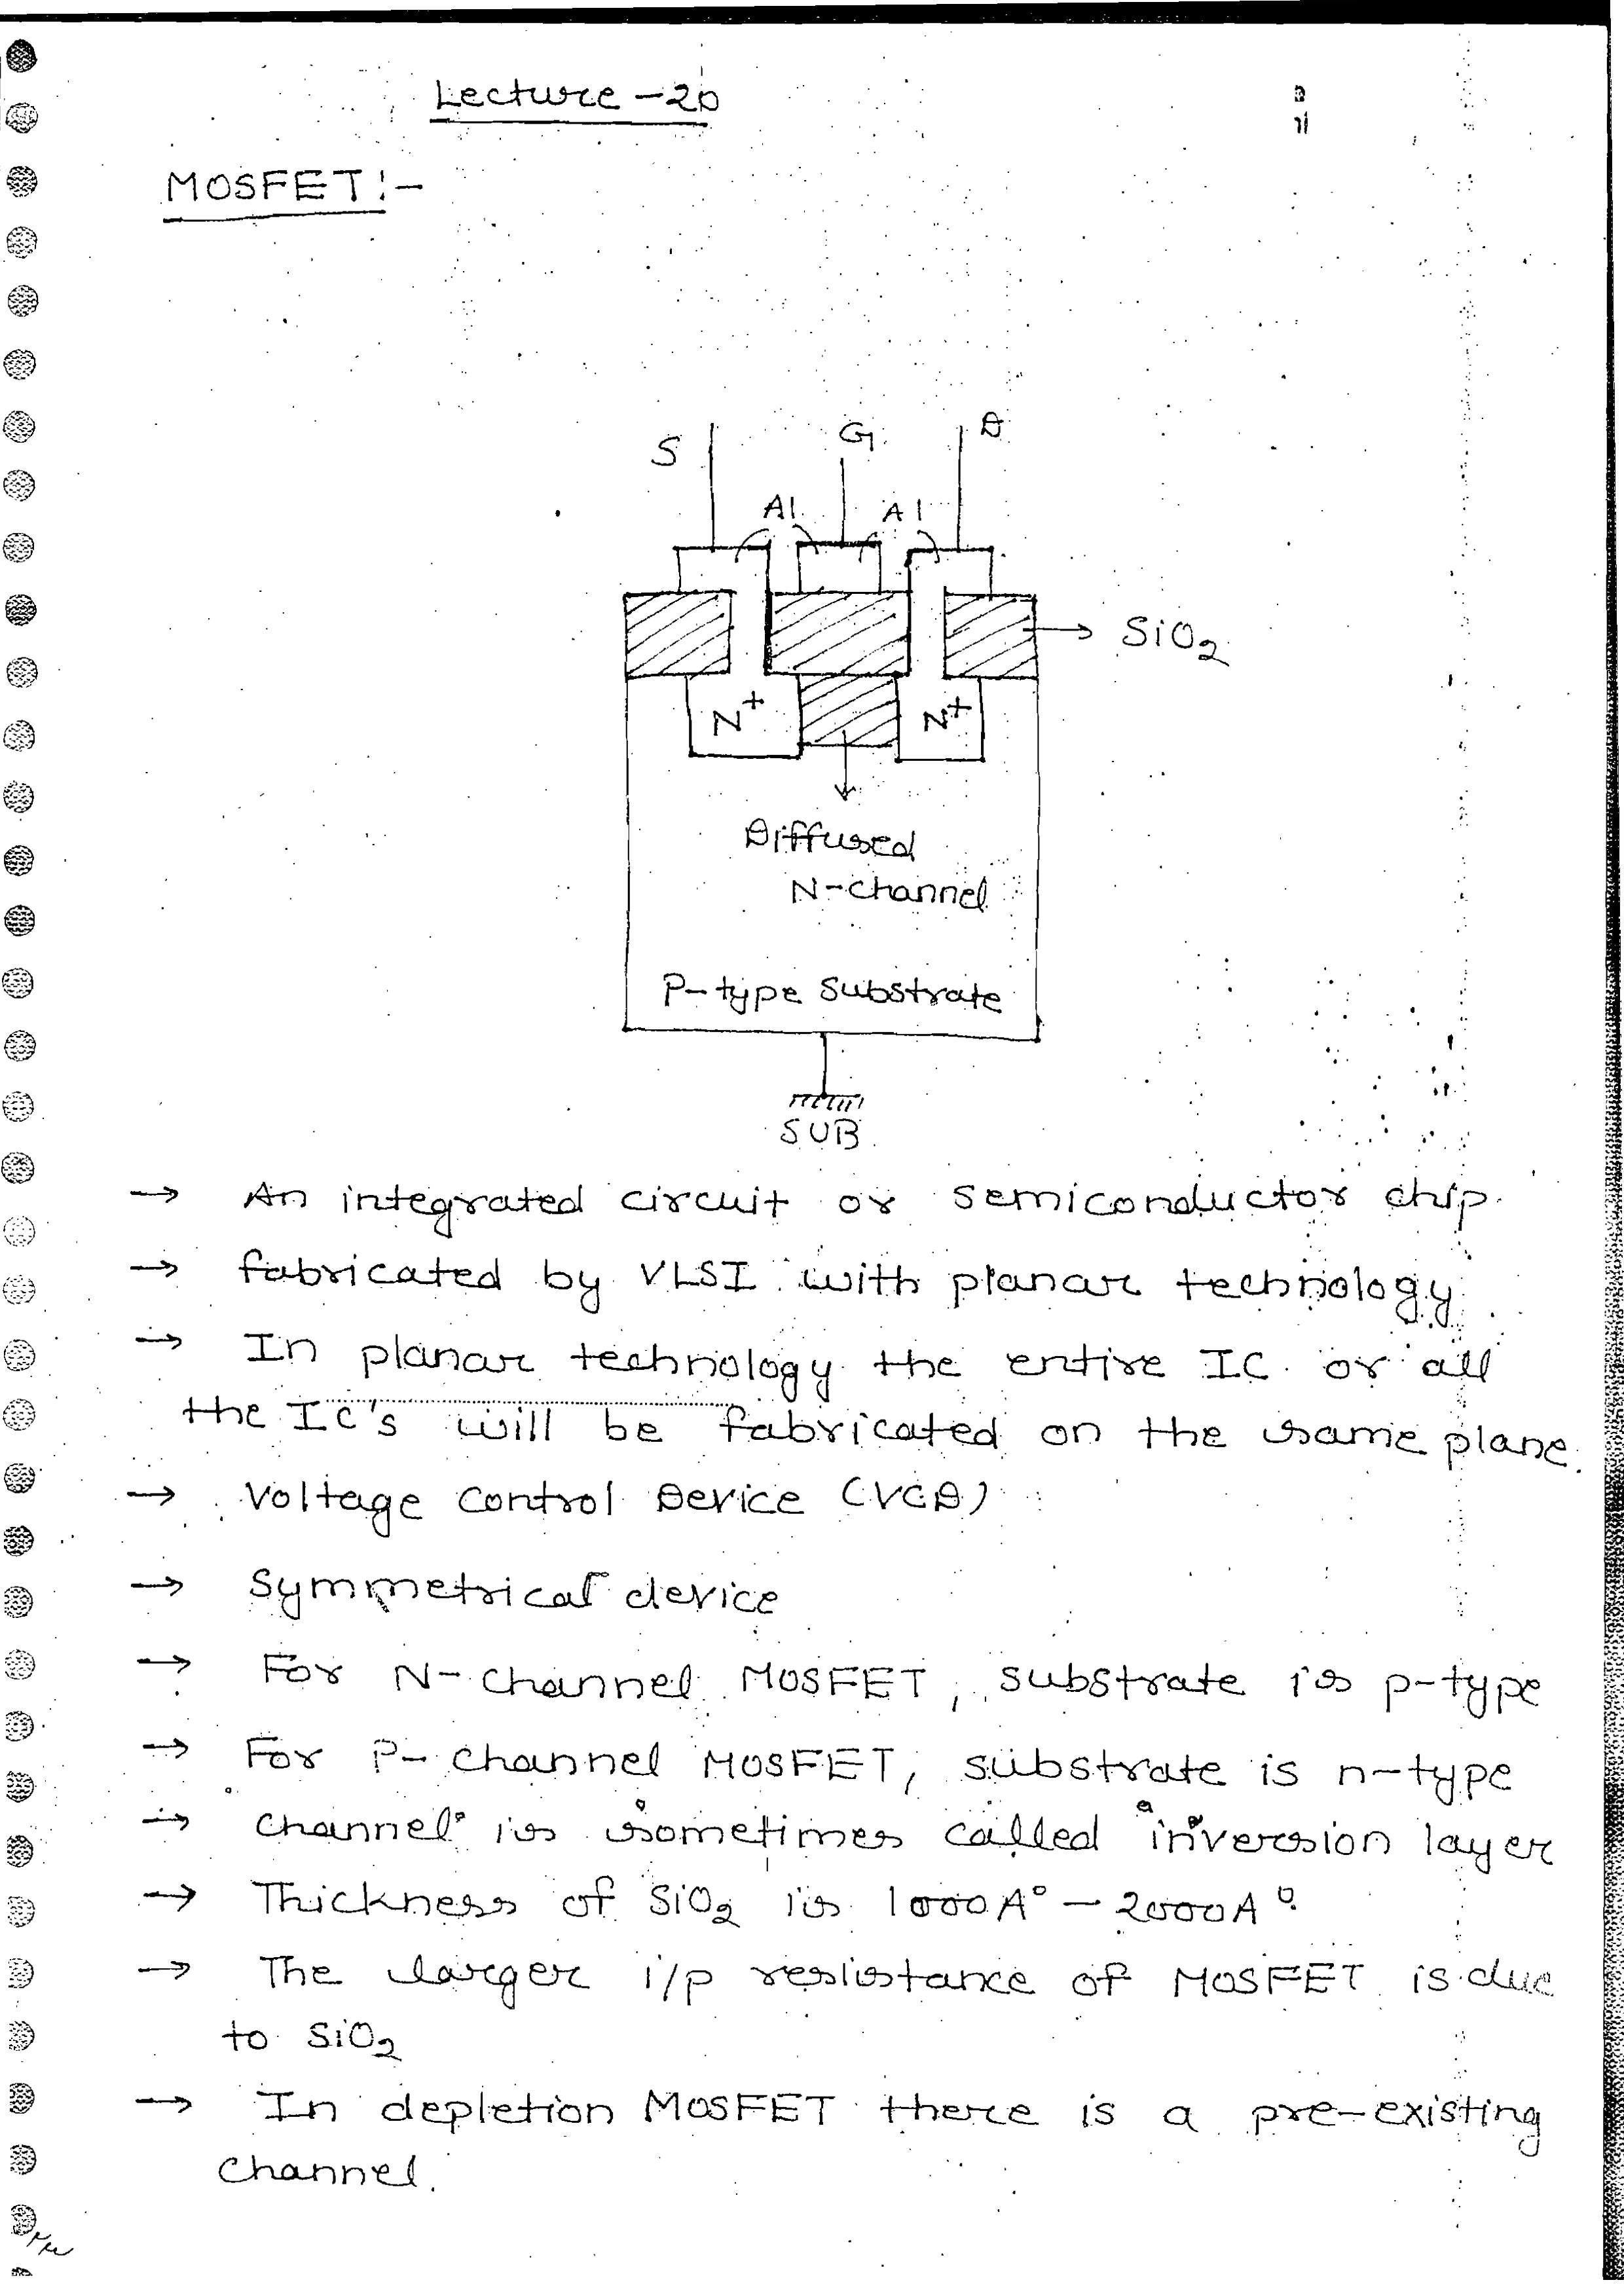 Lecture-20
MOSFET:-
S G D
Al Al
SiO2
N+ N+
Diffused
N-channel
P-type substrate
SUB
→ An integrated circuit or semiconductor chip.
→ fabricated by VLSI with planar technology
→ In planar technology the entire IC or all
the IC's will be fabricated on the same plane.
→ Voltage control Device (VCD)
→ Symmetrical device
→ For N-channel MOSFET, substrate is p-type
→ For P-channel MOSFET, substrate is n-type
→ channel is sometimes called inversion layer
→ Thickness of SiO2 is 1000A° - 2000A°
→ The larger i/p resistance of MOSFET is due
to SiO2
→ In depletion MOSFET there is a pre-existing
channel.